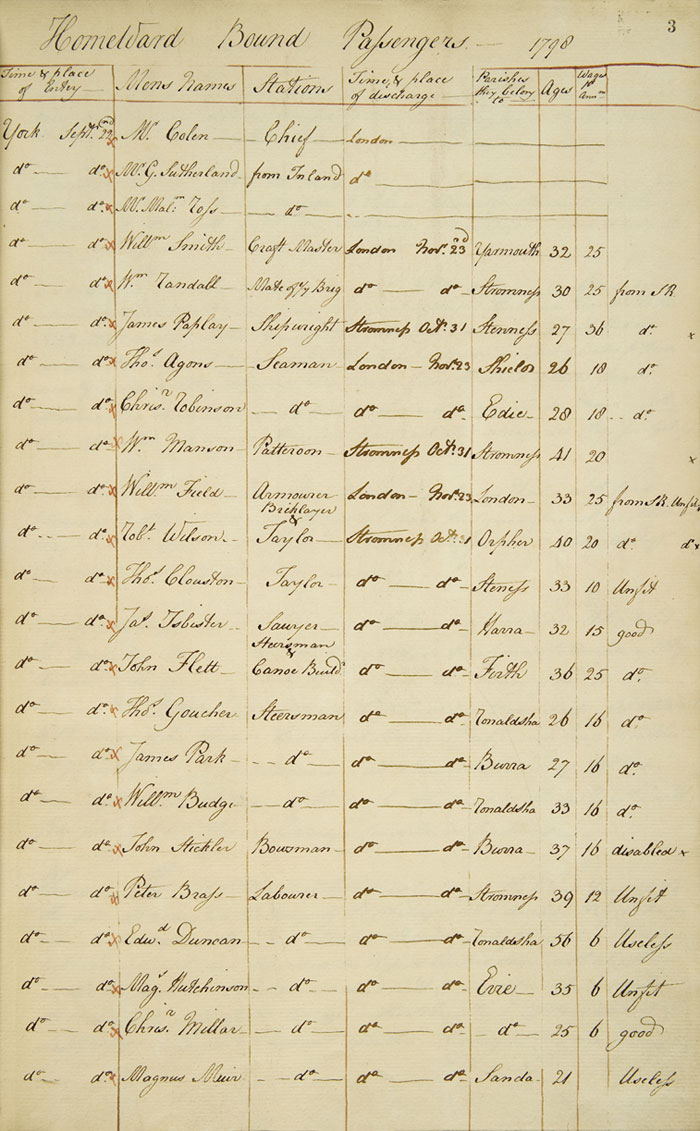 3
Homeward Bound Passengers — 1798
Time & place of Entry Mens Names Stations Time & place of discharge Parishes they belong to Ages Wages pr Annm
York Septr. 22nd x Mr. Colen Chief London
do do x Mr. G. Sutherland from Inland do
do do x Mr. Malm. Ross do
do do x Willm Smith Craft Master London Novr. 23d Yarmouth 32 25
do do x Wm Randall Mate of ye Brig do do Stromness 30 25 from S.R.
do do x James Paplay Shipwright Stromness Octr. 31 Stenness 27 36 do. x
do do x Thos Agons Seaman London Novr. 23 Shields 26 18 do.
do do x Chrisr. Robinson do do do Edie 28 18 do.
do do x Wm Manson Patteroon Stromness Octr. 31 Stromness 41 20 x
do do x Willm Field Armourer London Novr. 23 London 33 25 from S.R. Unfit
do do x Robt. Wilson Bricklayer & Taylor Stromness Octr. 31 Orpher 40 20 do do x
do do x Thos. Clouston Taylor do do Steness 33 10 Unfit
do do x Jas. Isbister Sawyer do do Harra 32 15 good
do do x John Flett Steersman & Canoe Buildr do do Firth 36 25 do.
do do x Thos. Goucher Steersman do do Ronaldsha 26 16 do.
do do x James Park do do do Burra 27 16 do.
do do x Willm Budge do do do Ronaldsha 33 16 do.
do do x John Stickler Bowsman do do Burra 37 16 disabled x
do do x Peter Brass Labourer do do Stromness 39 12 Unfit
do do x Edwd. Duncan do do do Ronaldsha 56 6 Useless
do do x Mags Hutchinson do do do Evie 35 6 Unfit
do do x Chrisr. Millar do do do do 25 6 good
do do x Magnus Muir do do do Sanda 21 Useless